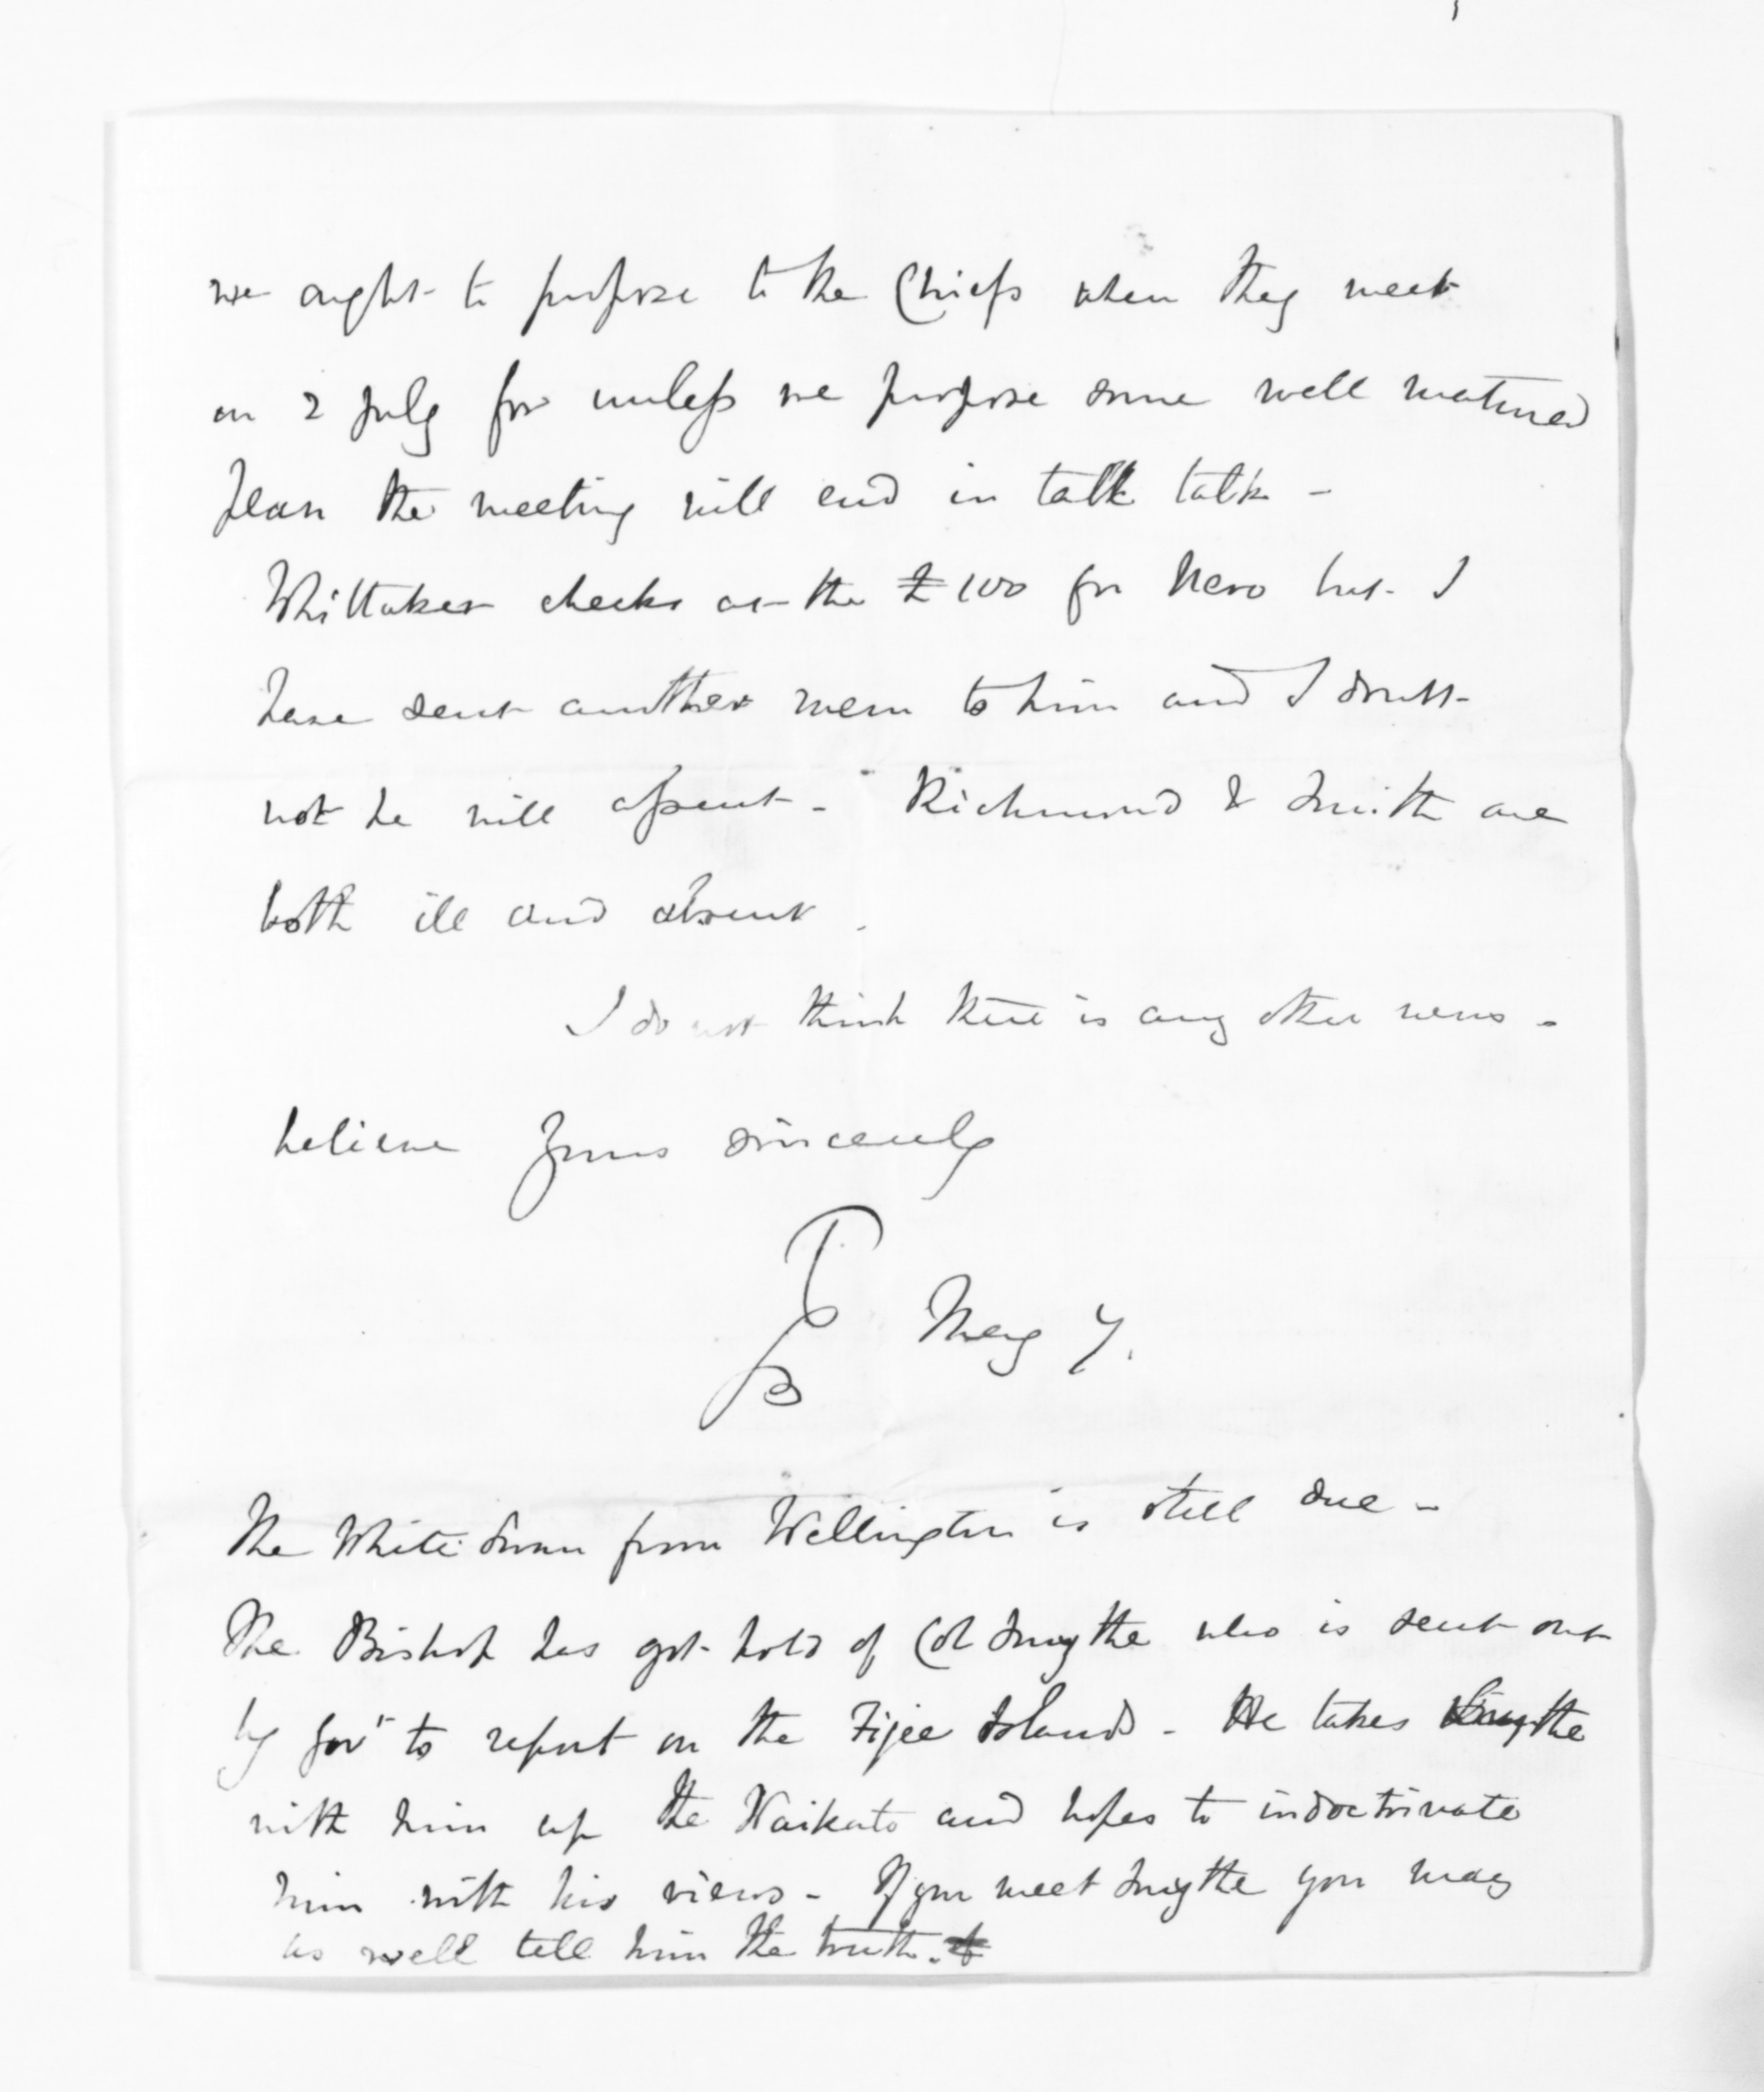 we ought to propose to the Chiefs when they meet
on 2 July for unless we propose some well matured
plan the meeting will end in talk talk -
Whittaker checks at the £100 for Nero but I
have sent another mem to him and I doubt
not he will assent - Richmond & Smith are
both ill and absent.
I do not think there is any other news -
believe yours sincerely
TGB May 7.
The White Swan from Wellington is still due -
The Bishop has got hold of Col Smythe who is sent out
by Govt to report on the Fijee Islands - He takes Smythe
with him up the Waikato and hopes to indoctrinate
him with his views - If you meet Smythe you may
as well tell him the truth.